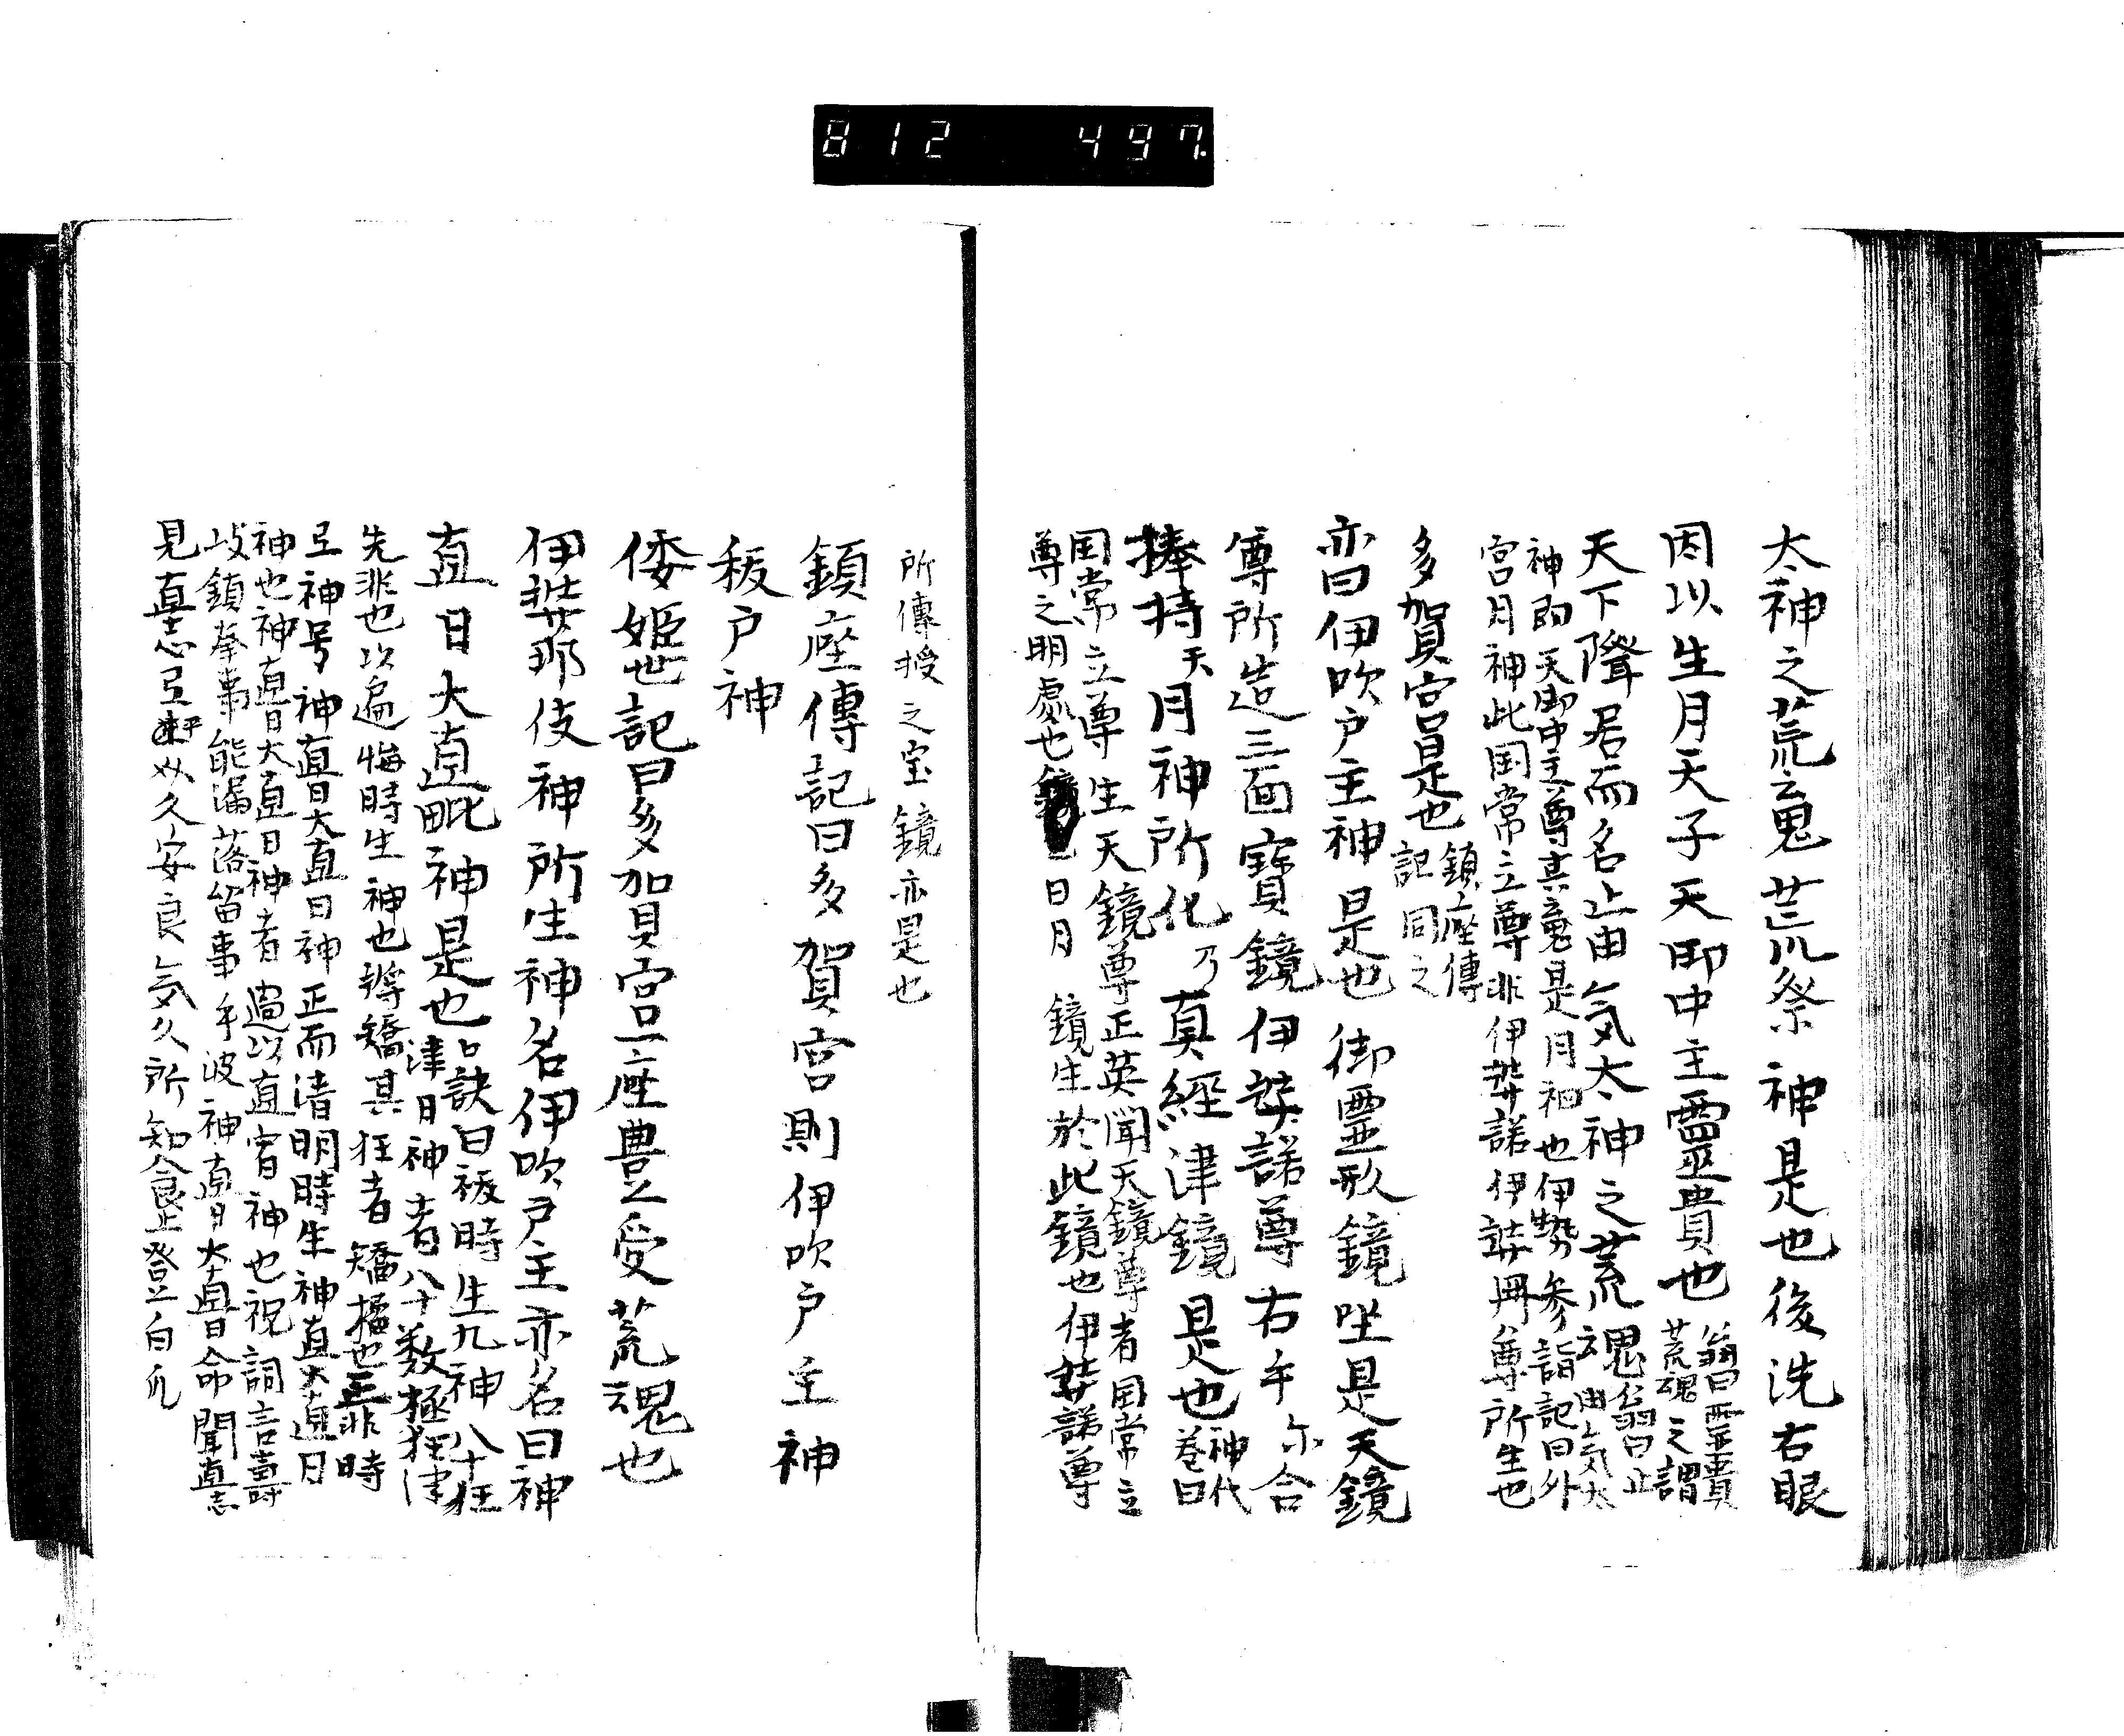 812 497.
太神之荒魂荒祭神是也後洗右眼
因以生月天子天御中主霊貴也
翁曰霊貴
荒魂之謂
天下降居而名止由気太神之荒魂
翁曰止
由気太
神即天御中主尊其魂是月神也伊勢参詣記曰外
宮月神此国常立尊非伊弉諾伊弉冊尊所生也
多賀宮是也
鎮座傳
記同之
亦曰伊吹戸主神是也御霊形鏡坐是天鏡
尊所造三面寶鏡伊弉諾尊右手
捧持天月神所化乃真經津鏡是也
神代
巻曰
国常立尊生天鏡尊正英聞天鏡尊者国常立
尊之明處也 日月 鏡生於此鏡也伊弉諾尊
所傳授之宝鏡亦是也
鎮座傳記曰多賀宮則伊吹戸主神
祓戸神
倭姫世記曰多加賀宮一座豊受荒魂也
伊弉那伎神所生神名伊吹戸主亦名曰神
直日大直毗神是也
口訣曰祓時生九神八十枉
津日神者八十数極枉津
先非也以扁悔時生神也將矯其枉者矯擡也正非時
号神直日大直日神正而清明時生神直大直日
神也神直日大直日神者過以直宥神也祝詞言壽
鎮奉事能漏落留事乎波神直日大直日命聞直志
見直志 久安良気久所知食登白